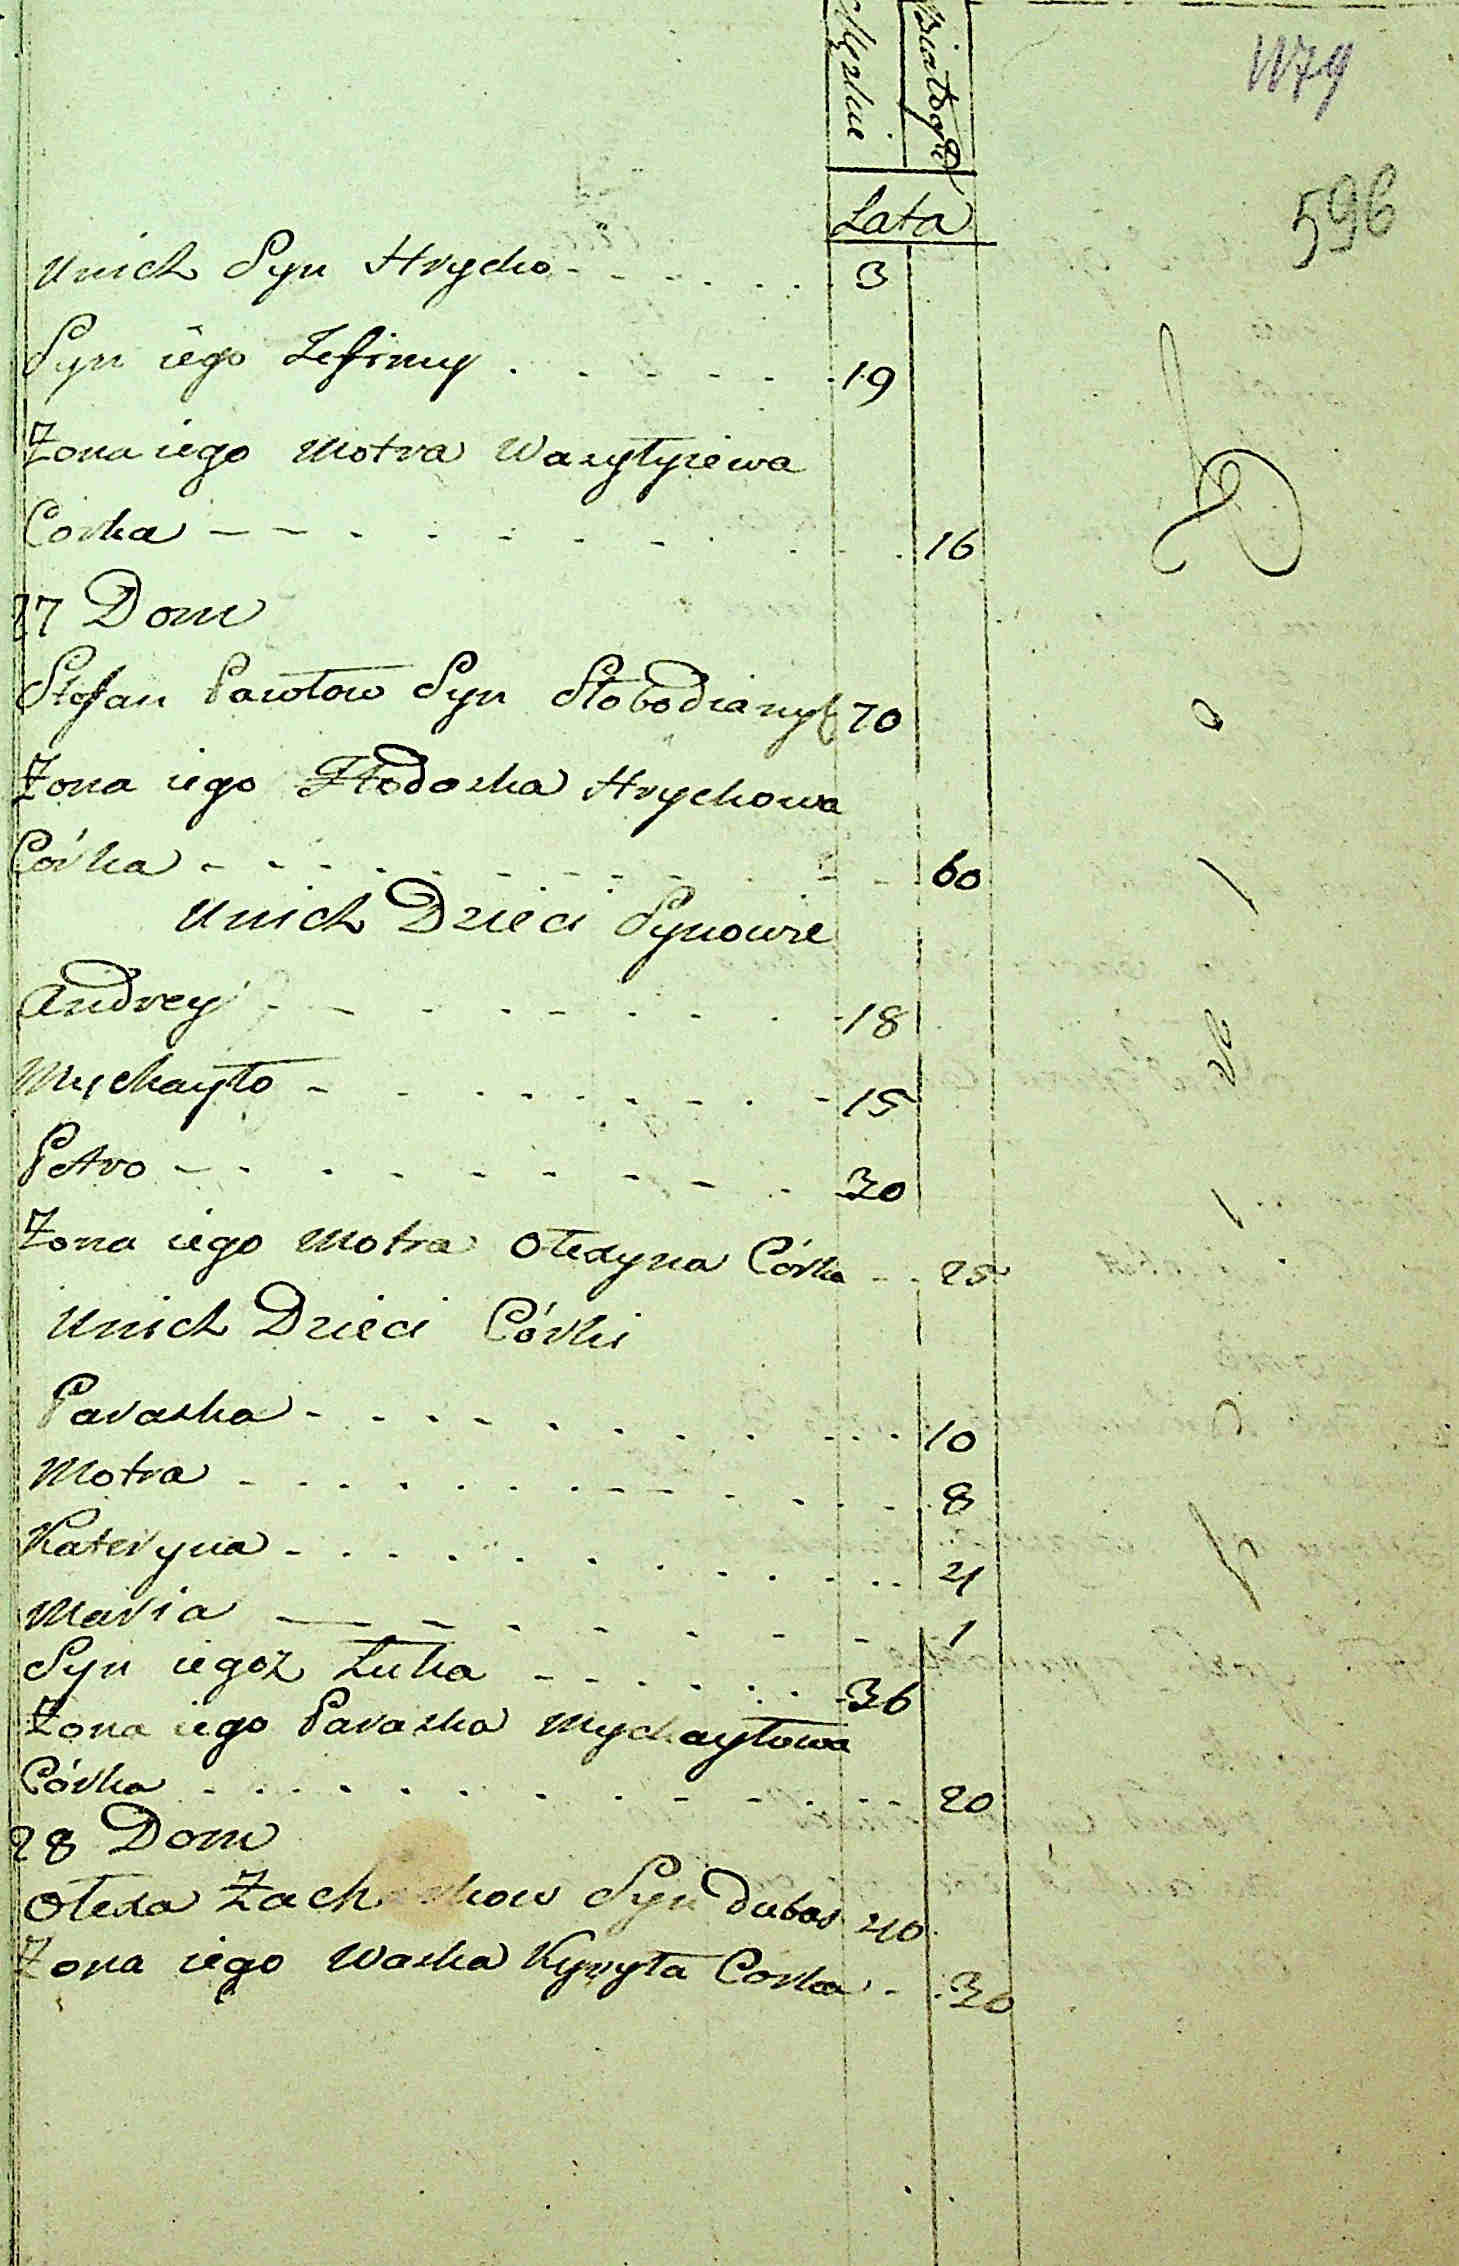 Męzkie
Białogł
1179
596
Lata
Unich Syn Hrycko - - - - - 3
Syn iego Jefimy . - - - - 19
Żona iego Motra Wasylyiewa
Corka - - - - - - - - 16
27 Dom
Stefan Pawłow Syn Słobodianyk 70
Żona iego Fedoska Hryckowa
Córka - - - - - - - - 60
Unich Dzieci Synowie
Andrey - - - - - - - 18
Mychayło - - - - - - - 15
Petro - - - - - - - - 30
Żona iego Motra Olexyna Córka - - 25
Unich Dzieci Córki
Paraska - - - - - - - - 10
Motra - - - - - - - - 8
Kateryna - - - - - - - - 4
Maria - - - - - - - 1
Syn iegoz Łuka - - - - - 36
Żona iego Paraska Mychayłowa
Córka - - - - - - - - 20
28 Dom
Olexa Zach kow Syn Dubas 40
Żona iego Waska Kyryła Corka - - 30